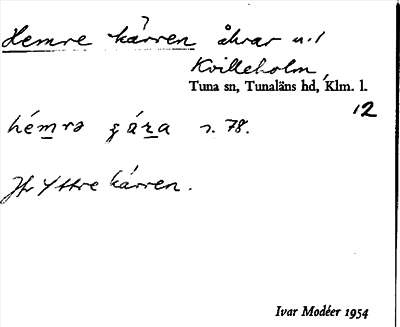 Hemre kärren åkrar u./
Kvilleholm,
Tuna sn, Tunaläns hd, Klm. l.
12
hémrə s. 78.
Jfr Yttre kärren.
Ivar Modéer 1954